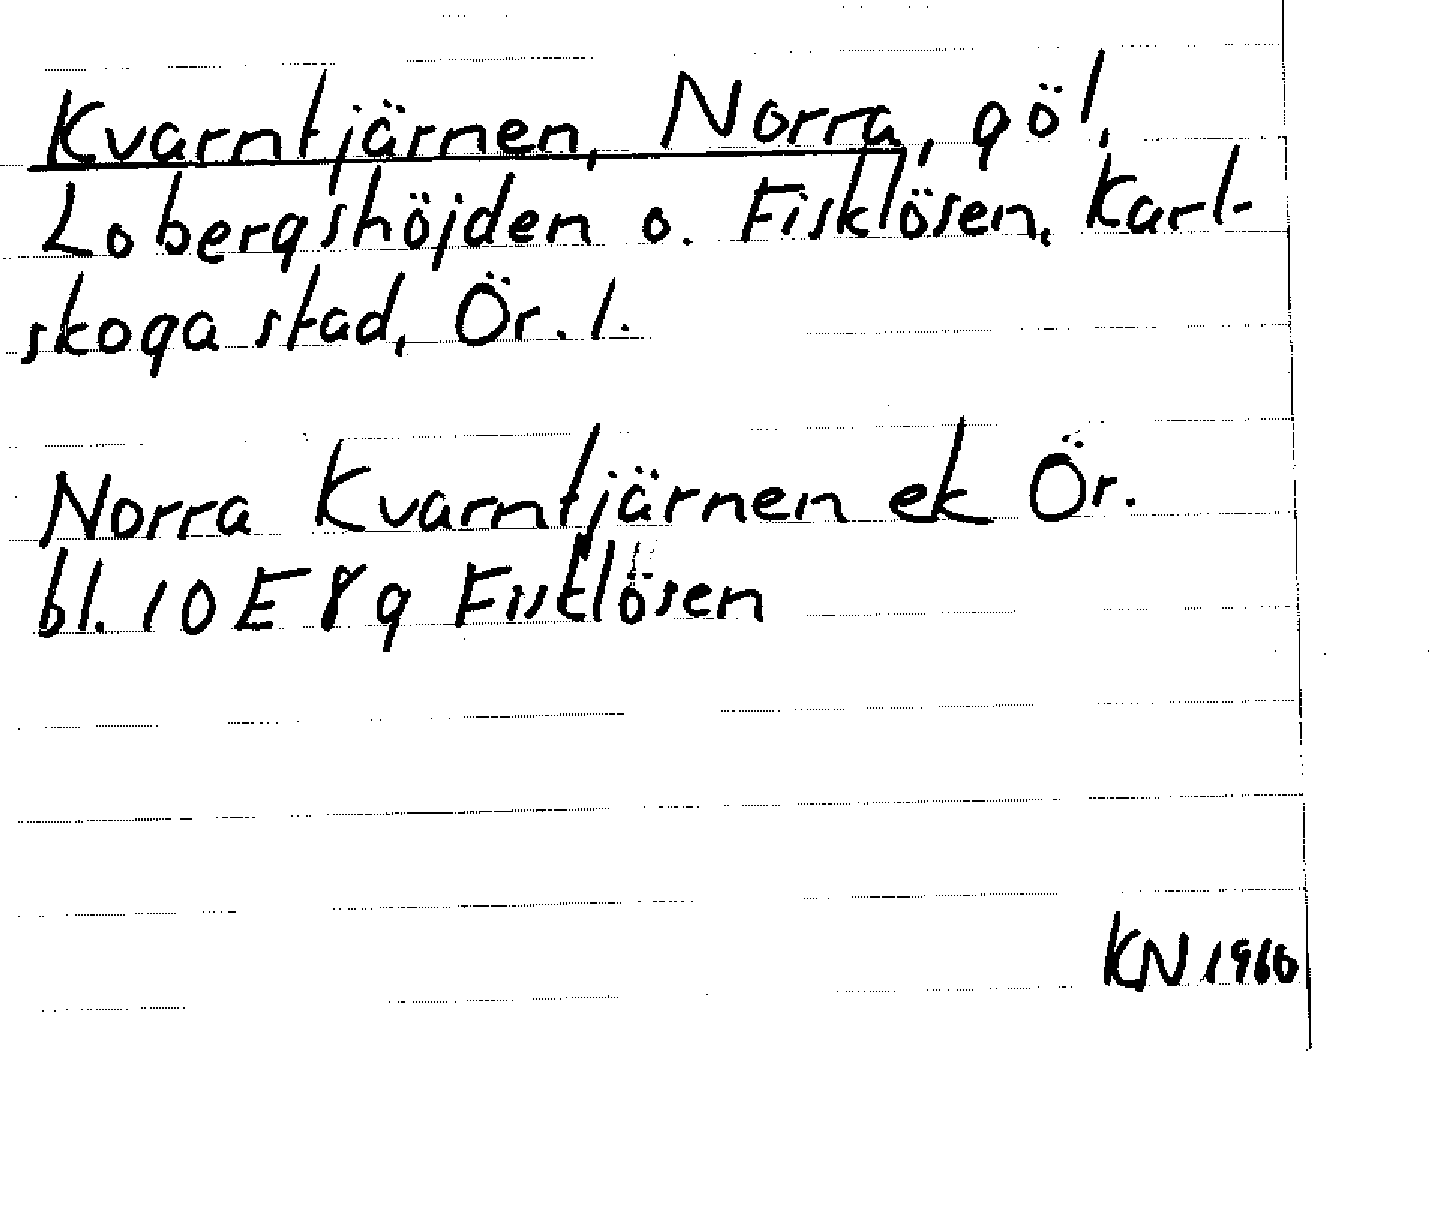 Kvarntjärnen, Norra, göl,
Lobergshöjden o. Fisklösen, Karl-
skoga stad, Ör. l.
Norra Kvarntjärnen ek Ör.
bl. 10 E 8 g Fisklösen
KN 1960